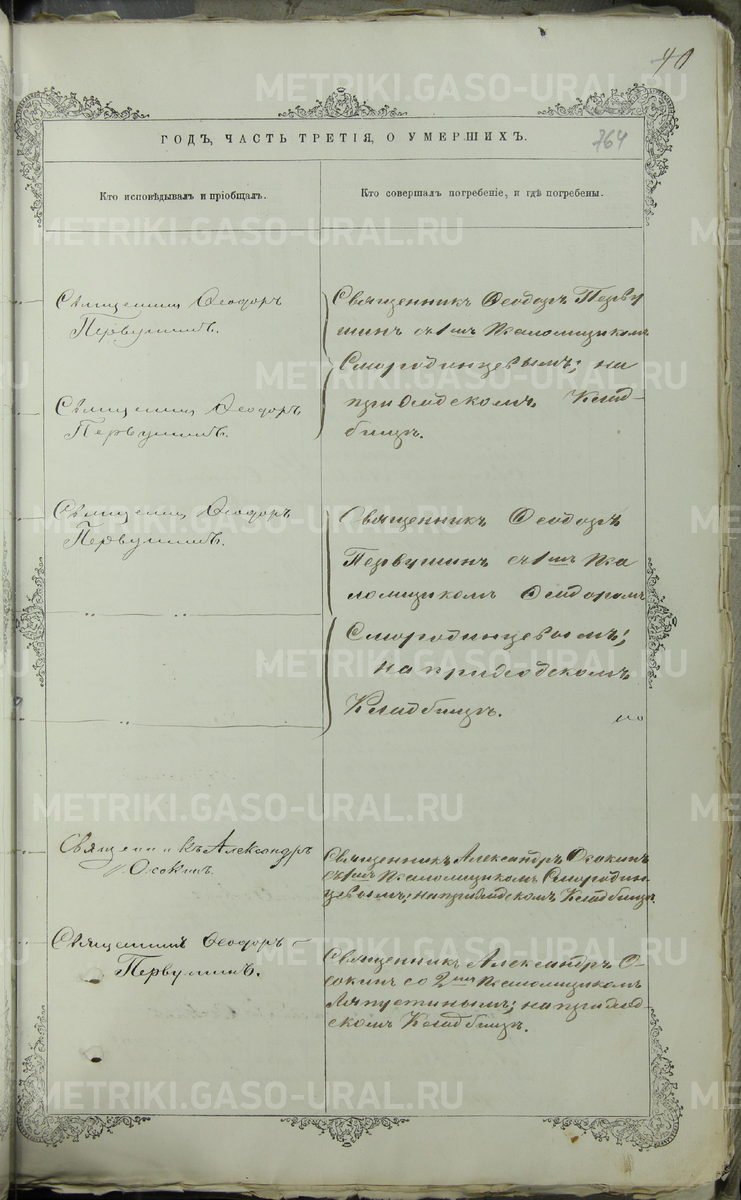 40
ГОДЪ, ЧАСТЬ ТРЕТІЯ, О УМЕРШИХЪ.
764
Кто исповѣдывалъ и пріобщалъ.
Кто совершалъ погребеніе, и гдѣ погребены.
Священникъ Ѳеодоръ
Первушинъ.
Священникъ Ѳеодоръ Перву
шинъ съ 1мъ Псаломщикомъ
Смородинцевымъ; на
приходскомъ Клад-
бищѣ.
Священникъ Ѳеодоръ
Первушинъ.
Священникъ Ѳеодоръ
Первушинъ.
„ „
„ „
Священникъ Ѳеодоръ
Первушинъ съ 1мъ Пса
ломщикомъ Ѳеодоромъ
Смородинцевымъ;
на приходскомъ
Кладбищѣ.
Священникъ Александръ
Осокинъ.
Священникъ Александръ Осокинъ
съ 1мъ Псаломщикомъ Смородин-
цевымъ; на приходскомъ Кладбищѣ
Священникъ Ѳеодоръ
Первушинъ.
Священникъ Александръ О-
сокинъ со 2мъ Псаломщикомъ
Ляпустинымъ; на приход-
скомъ Кладбищѣ.
METRIKI.GASO-URAL.RU